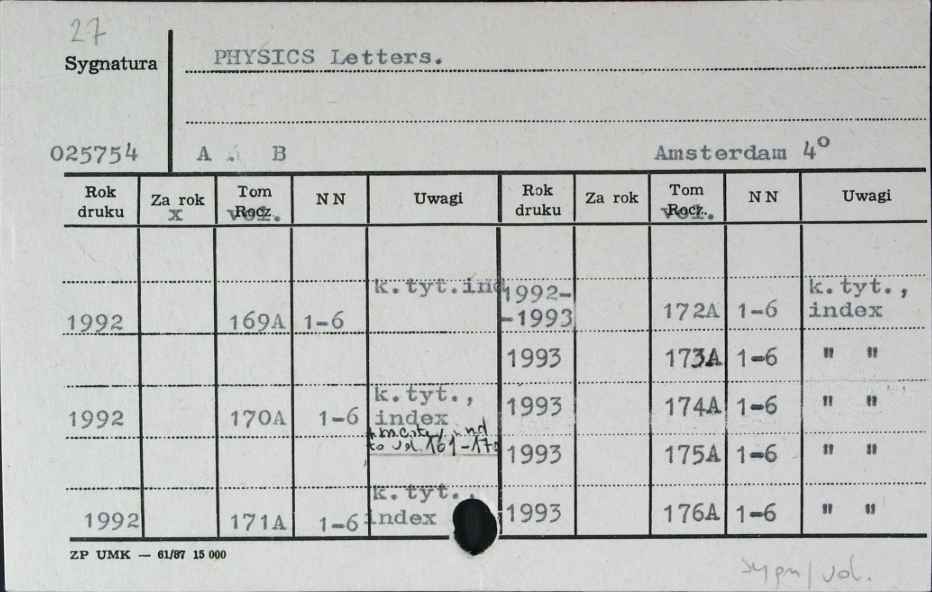 27
Sygnatura
PHYSICS Letters.
025754 A . B Amsterdam 4º
Rok druku Za rok Tom Rocz. NN Uwagi Rok druku Za rok Tom Rocz. NN Uwagi
x vol. vol.
1992 169A 1-6 k.tyt.ind
1992 170A 1-6 k.tyt., index
ind
to vol. 161-170
1992 171A 1-6 k.tyt., index
1992--1993 172A 1-6 k.tyt., index
1993 173A 1-6 " "
1993 174A 1-6 " "
1993 175A 1-6 " "
1993 176A 1-6 " "
ZP UMK — 61/87 15 000
sygn/vol.